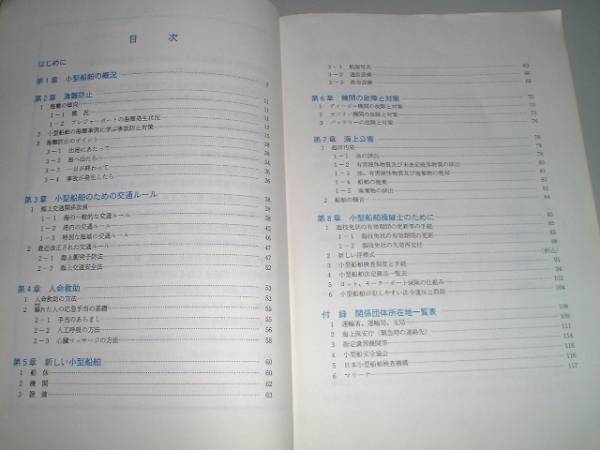 目 次
はじめに
第1章 小型船舶の概況 7
第2章 海難防止 11
1 海難の概況 11
1-1 概 況 11
1-2 プレジャーボートの海難発生状況
2 小型船舶の海難事例に学ぶ事故防止対策
3 海難防止のポイント
3-1 出港にあたって
3-2 海へ出たら
3-3 一日が終わって
3-4 事故が発生したら
第3章 小型船舶のための交通ルール 38
1 海上交通関係法規 38
1-1 海の一般的な交通ルール 38
1-2 港内の交通ルール
1-3 特別な海域の交通ルール
2 最近改正された交通ルール
2-1 海上衝突予防法
2-2 海上交通安全法
第4章 人命救助 53
1 人命救助の方法 53
2 溺れた人の応急手当の基礎 55
2-1 手当のあらまし 55
2-2 人工呼吸の方法
2-3 心臓マッサージの方法 58
第5章 新しい小型船舶 60
1 船 体 60
2 機 関 62
3 設 備 63
3-1
3-2
3-3
第6章 機関の故障と対策 70
1 ディーゼル機関の故障と対策 70
2 ガソリン機関の故障と対策
3 バッテリーの故障と対策 76
第7章 海上公害 78
1 海洋汚染
1-1 油の排出
1-2 有害液体物質及び未査定液体物質の排出
1-3 油、有害液体物質及び廃棄物の規制
1-4 船舶の廃棄
1-5 廃棄物の排出
2 船舶の騒音
第8章 小型船舶操縦士のために
1 海技免状の有効期間の更新等の手続
1-1 海技免状の有効期間の更新
1-2 海技免状の失効再交付
2 新しい浮標式
3 小型船舶検査制度と手続
4 小型船舶法定備品一覧表 94
5 ヨット、モーターボート保険の仕組み
6 小型船舶が犯しやすい法令違反と罰則 104
付 録 関係団体所在地一覧表 108
1 運輸省、運輸局、支局 108
2 海上保安庁(緊急時の連絡先) 111
3 指定講習機関等 114
4 小型船舶安全協会 116
5 日本小型船舶検査機構 116
6 マリーナ 117